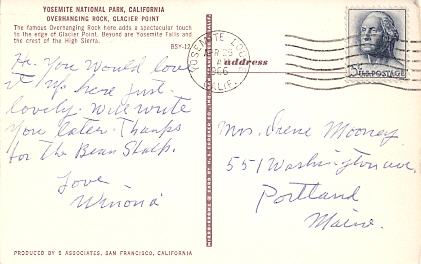 YOSEMITE NATIONAL PARK, CALIFORNIA
OVERHANGING ROCK, GLACIER POINT
The famous Overhanging Rock here adds a spectacular touch
to the edge of Glacier Point. Beyond are Yosemite Falls and
the crest of the High Sierra.
BSY-12
Hi. You would love
it up here just
lovely. Will write
you later. Thanks
for the Bean Stalk.
Love
Winona
PRODUCED BY B ASSOCIATES, SAN FRANCISCO, CALIFORNIA
YOSEMITE LODGE
APR 25
1966
CALIF.
address
5c U.S. POSTAGE
Mrs. Irene Mooney
551 Washington ave.
Portland
Maine.